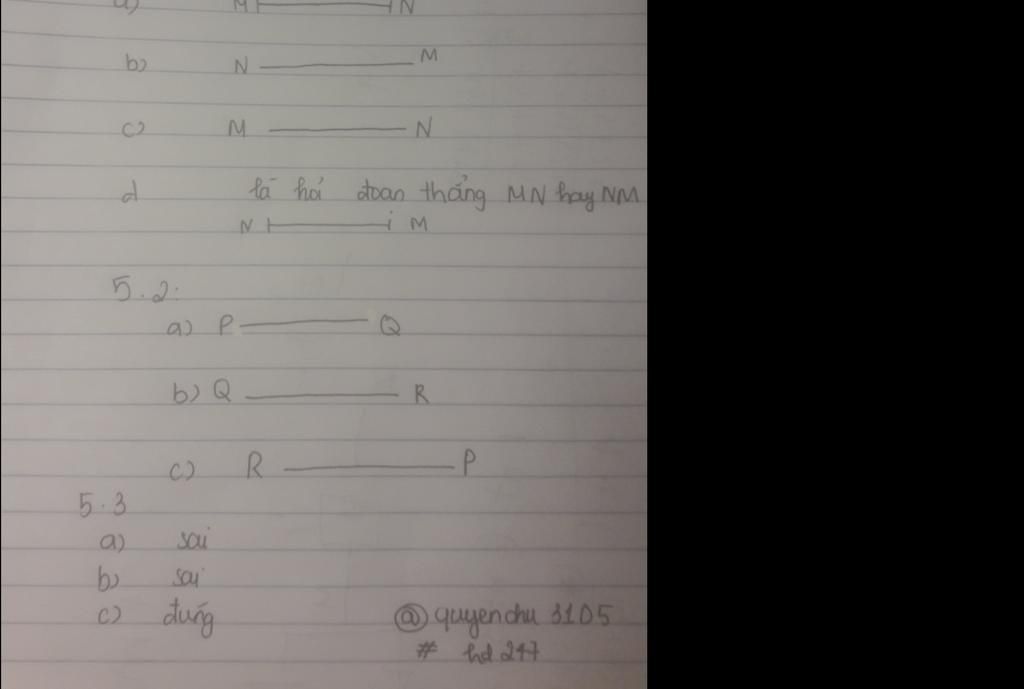 a) M N
b) N M
c) M N
d là hai đoan thẳng MN hay NM
N M
5.2:
a) P Q
b) Q R
c) R P
5.3
a) sai
b) sai
c) đúng
@quyenchu 3105
# hd 247